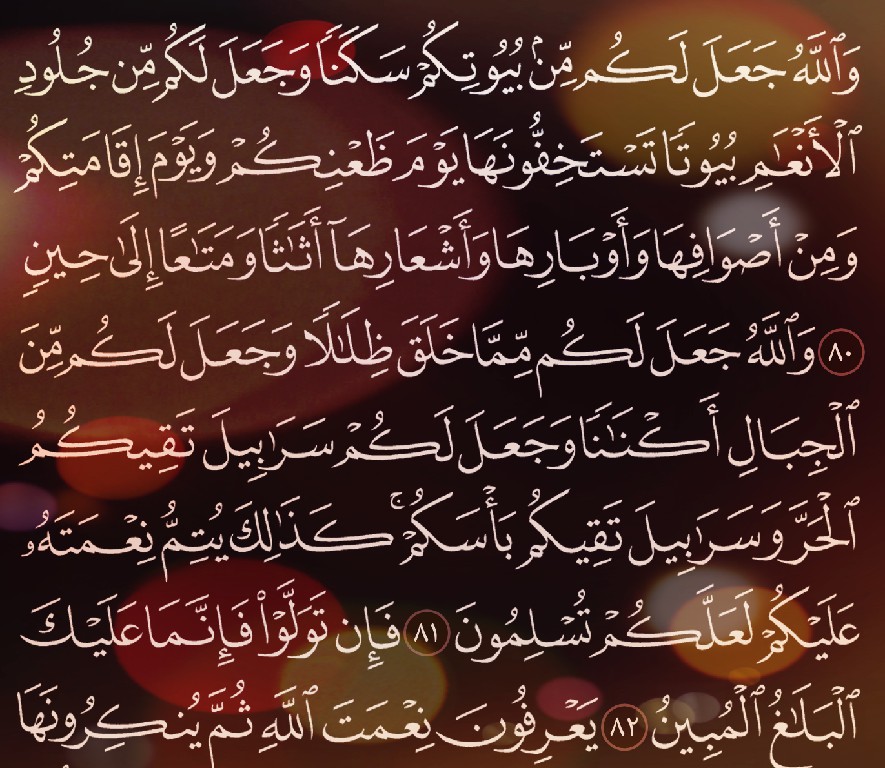 وَٱللَّهُ جَعَلَ لَكُم مِّنۢ بُيُوتِكُمْ سَكَنًا وَجَعَلَ لَكُم مِّن جُلُودِ
ٱلْأَنْعَٰمِ بُيُوتًا تَسْتَخِفُّونَهَا يَوْمَ ظَعْنِكُمْ وَيَوْمَ إِقَامَتِكُمْ
وَمِنْ أَصْوَافِهَا وَأَوْبَارِهَا وَأَشْعَارِهَآ أَثَٰثًا وَمَتَٰعًا إِلَىٰ حِينٍ
٨٠ وَٱللَّهُ جَعَلَ لَكُم مِّمَّا خَلَقَ ظِلَٰلًا وَجَعَلَ لَكُم مِّنَ
ٱلْجِبَالِ أَكْنَٰنًا وَجَعَلَ لَكُمْ سَرَٰبِيلَ تَقِيكُمُ
ٱلْحَرَّ وَسَرَٰبِيلَ تَقِيكُم بَأْسَكُمْ ۚ كَذَٰلِكَ يُتِمُّ نِعْمَتَهُۥ
عَلَيْكُمْ لَعَلَّكُمْ تُسْلِمُونَ ٨١ فَإِن تَوَلَّوْا۟ فَإِنَّمَا عَلَيْكَ
ٱلْبَلَٰغُ ٱلْمُبِينُ ٨٢ يَعْرِفُونَ نِعْمَتَ ٱللَّهِ ثُمَّ يُنكِرُونَهَا